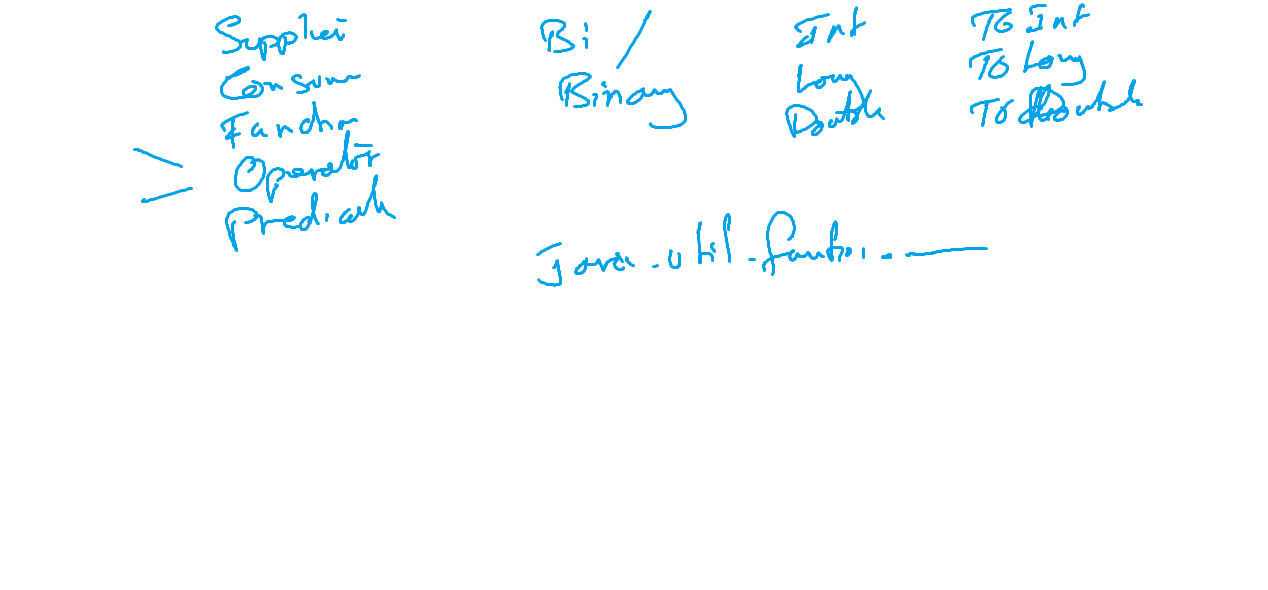 Supplier
Consum
Function
Operator
Predicate
Bi /
Binary
Int
Long
Double
To Int
To Long
To Double
java.util.function.